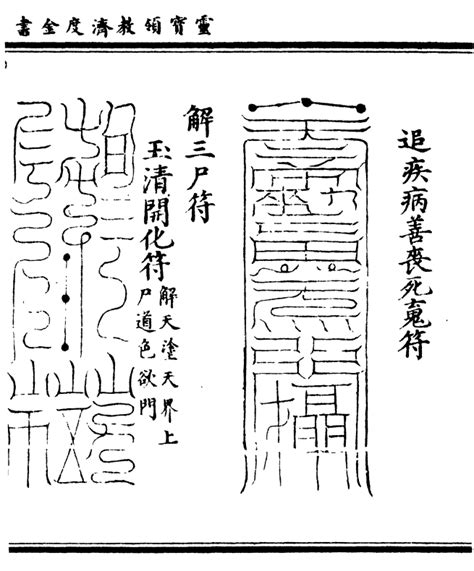 靈寶領教濟度金書
追疾病善喪死䰟符
解三尸符
玉清開化符
解天塗天界上
尸道色欲門